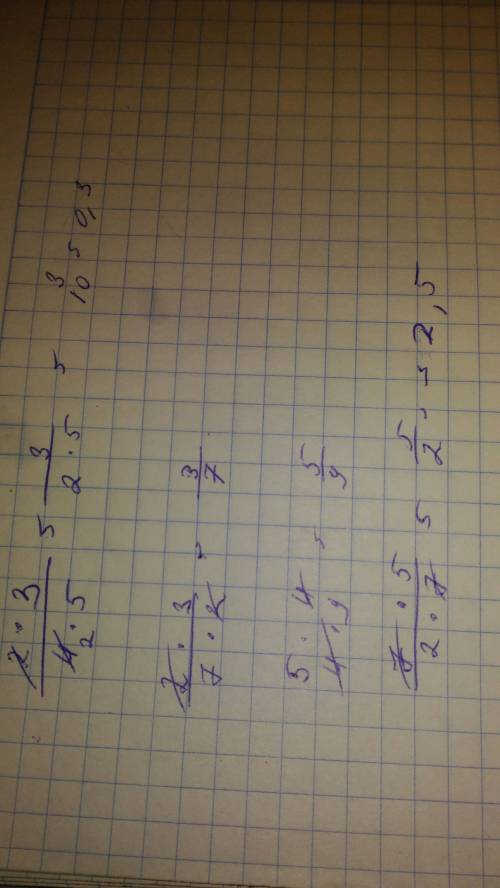 2·3/4·5 = 3/2·5 = 3/10 = 0,3
2
2·3/7·2 = 3/7
5·4/4·9 = 5/9
7·5/2·7 = 5/2 = 2,5